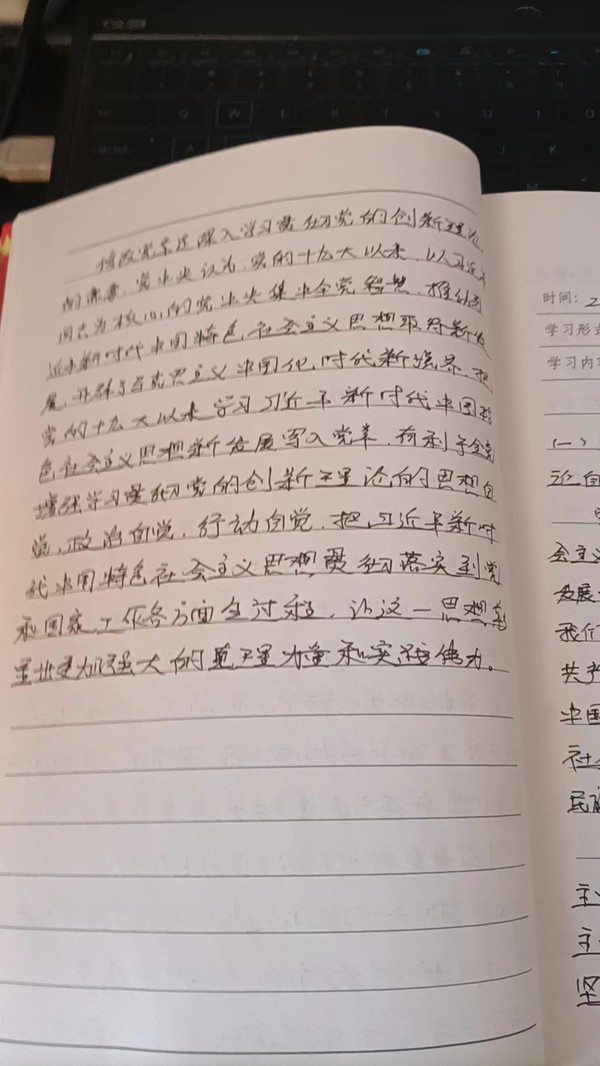 修改党章是深入学习贯彻党的创新理论
的需要，党中央认为，党的十九大以来，以习近平
同志为核心的党中央集中全党智慧，推动习
近平新时代中国特色社会主义思想取得新发
展，开辟了马克思主义中国化时代新境界，把
党的十九大以来学习习近平新时代中国特
色社会主义思想新发展写入党章，有利于全党
增强学习贯彻党的创新理论的思想自
觉，政治自觉，行动自觉，把习近平新时
代中国特色社会主义思想贯彻落实到党
和国家工作各方面全过程，让这一思想
更加强大的真理力量和实践伟力。
时间：2
学习形式
学习内容
（一）
论自
会主义
发展
我们
共产
中国
社会
民族
主
主
坚